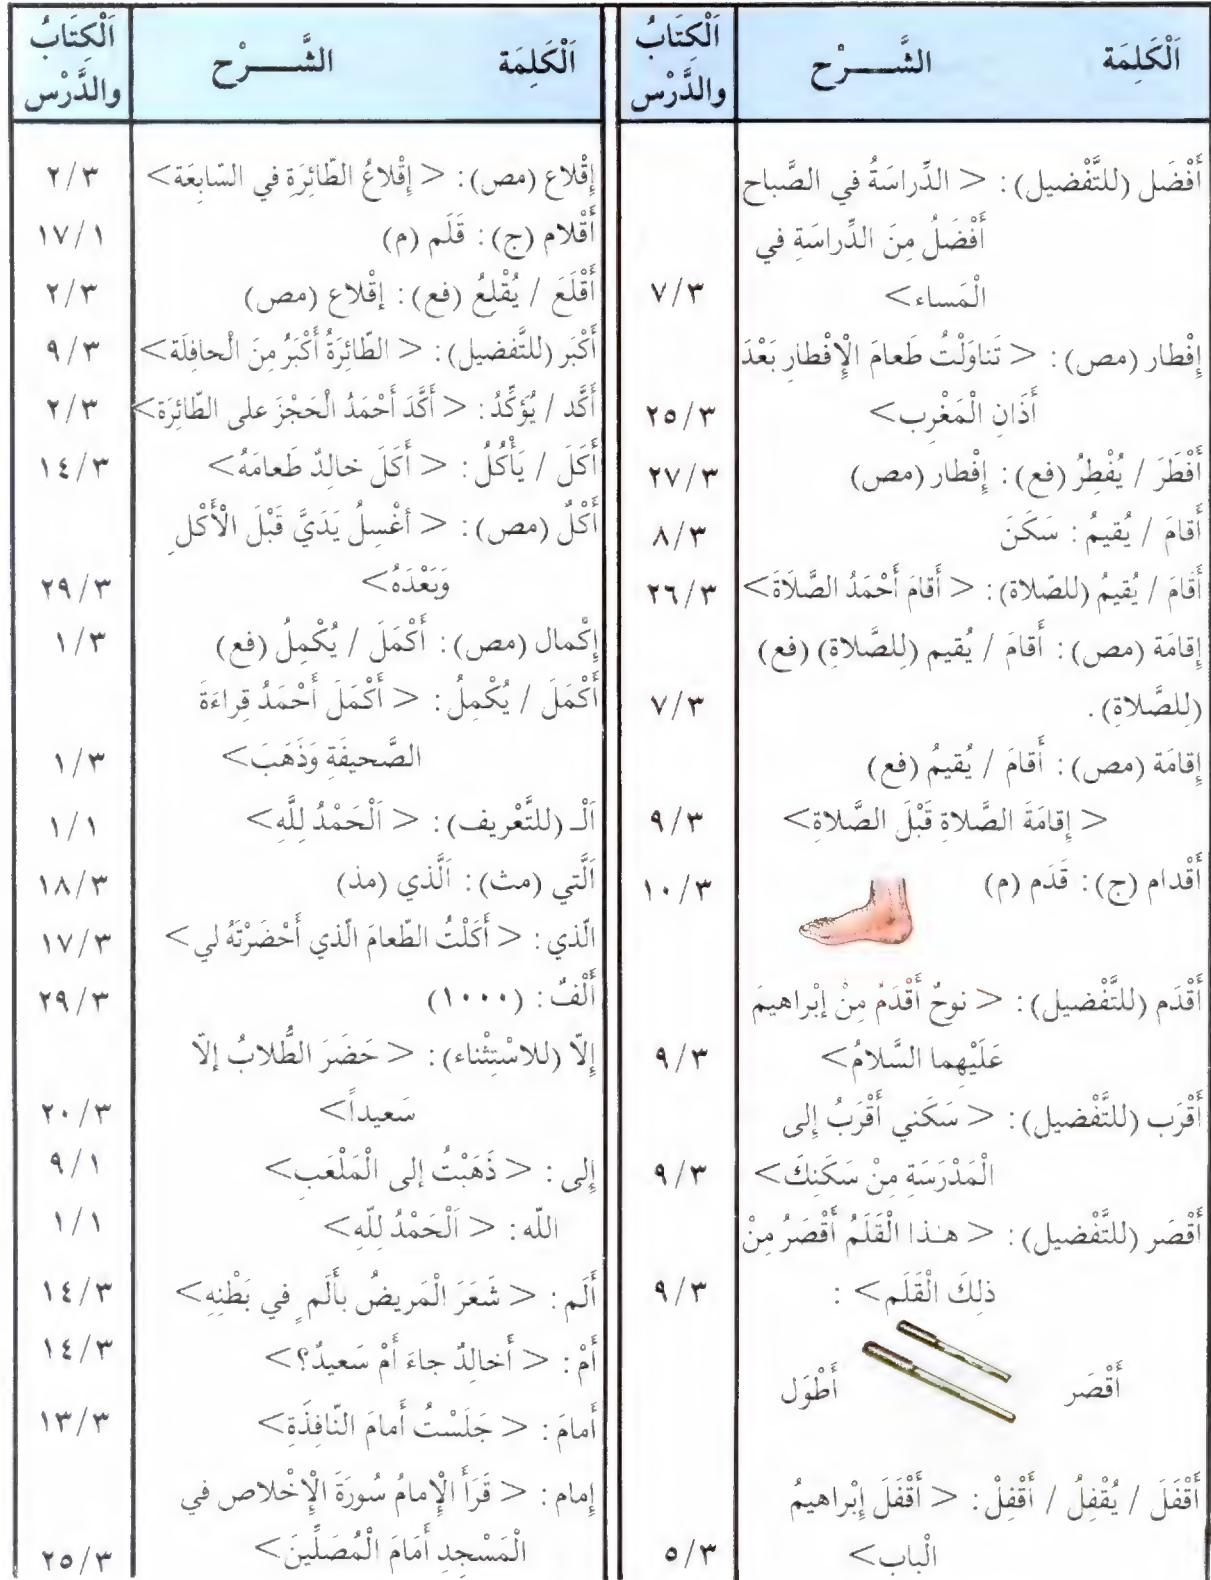 اَلْكَلِمَة الشَّـــرْح اَلْكِتَابُ والدَّرْس
أَفْضَل (للتَّفْضيل) : < الدِّراسَةُ في الصَّباح
أَفْضَلُ مِنَ الدِّراسَةِ في
الْمَساء> ٧/٣
إِفْطار (مص) : < تَناوَلْتُ طَعامَ الْإِفْطارِ بَعْدَ
أَذَانِ الْمَغْرِب> ٢٥/٣
أَفْطَرَ / يُفْطِرُ (فع) : إِفْطار (مص) ٢٧/٣
أَقامَ / يُقيمُ : سَكَنَ ٨/٣
أَقَامَ / يُقيمُ (للصّلاة) : < أَقامَ أَحْمَدُ الصَّلَاةَ> ٢٦/٣
إِقامَة (مص) : أَقامَ / يُقيم (لِلصَّلاةِ) (فع)
(لِلصَّلاةِ) . ٧/٣
إِقامَة (مص) : أَقامَ / يُقيمُ (فع)
< إِقامَةَ الصَّلاةِ قَبْلَ الصَّلاةِ> ٩/٣
أَقْدام (ج) : قَدَم (م) ١٠/٣
أَقْدَم (للتَّفْضيل) : < نوحٌ أَقْدَمُ مِنْ إِبْراهيمَ
عَلَيْهِما السَّلامُ> ٩/٣
أَقْرَب (للتَّفْضيل) : < سَكَني أَقْرَبُ إِلى
الْمَدْرَسَةِ مِنْ سَكَنِكَ> ٩/٣
أَقْصَر (للتَّفْضيل) : < هـذا الْقَلَمُ أَقْصَرُ مِنْ
ذلِكَ الْقَلَم> : ٩/٣
أَقْصَر أَطْوَل
أَقْفَلَ / يُقْفِلُ / أَقْفِلْ : < أَقْفَلَ إِبْراهيمُ
الْباب> ٥/٣
اَلْكَلِمَة الشَّـــرْح اَلْكِتَابُ والدَّرْس
إِقْلاع (مص) : < إِقْلاعُ الطّائِرَةِ في السّابِعَة> ٢/٣
أَقْلام (ج) : قَلَم (م) ١٧/١
أَقْلَعَ / يُقْلِعُ (فع) : إِقْلاع (مص) ٢/٣
أَكْبَر (للتَّفضيل) : < الطّائِرَةُ أَكْبَرُ مِنَ الْحافِلَة> ٩/٣
أَكَّد / يُؤَكِّدُ : < أَكَّدَ أَحْمَدُ الْحَجْزَ على الطّائِرَة> ٢/٣
أَكَلَ / يَأْكُلُ : < أَكَلَ خالِدٌ طَعامَهُ> ١٤/٣
أَكْلٌ (مص) : < أغْسِلُ يَدَيَّ قَبْلَ الْأَكْلِ
وَبَعْدَهُ> ٢٩/٣
إِكْمال (مص) : أَكْمَلَ / يُكْمِلُ (فع) ١/٣
أَكْمَلَ / يُكْمِلُ : < أَكْمَلَ أَحْمَدُ قِراءَةَ
الصَّحيفَةِ وَذَهَبَ> ١/٣
اَلْـ (للتَّعْريف) : < اَلْحَمْدُ لِلَّهِ> ١/١
اَلَّتي (مث) : اَلَّذي (مذ) ١٨/٣
الّذي : < أَكَلْتُ الطّعامَ الّذي أَحْضَرْتَهُ لي> ١٧/٣
أَلْفٌ : (١٠٠٠) ٢٩/٣
إِلّا (للاسْتِثْناء) : < حَضَرَ الطُّلابُ إلّا
سَعيداً> ٢٠/٣
إِلى : < ذَهَبْتُ إلى الْمَلْعَب> ٩/١
اللّه : < اَلْحَمْدُ لِلّهِ> ١/١
أَلَم : < شَعَرَ الْمَريضُ بأَلَمٍ في بَطْنِهِ> ١٤/٣
أَمْ : < أخالِدٌ جاءَ أَمْ سَعيدٌ؟> ١٤/٣
أَمامَ : < جَلَسْتُ أَمامَ النّافِذَةِ> ١٣/٣
إِمام : < قَرَأَ الْإِمامُ سُورَةَ الْإِخْلاص في
الْمَسْجِدِ أَمَامَ الْمُصَلِّينَ> ٢٥/٣